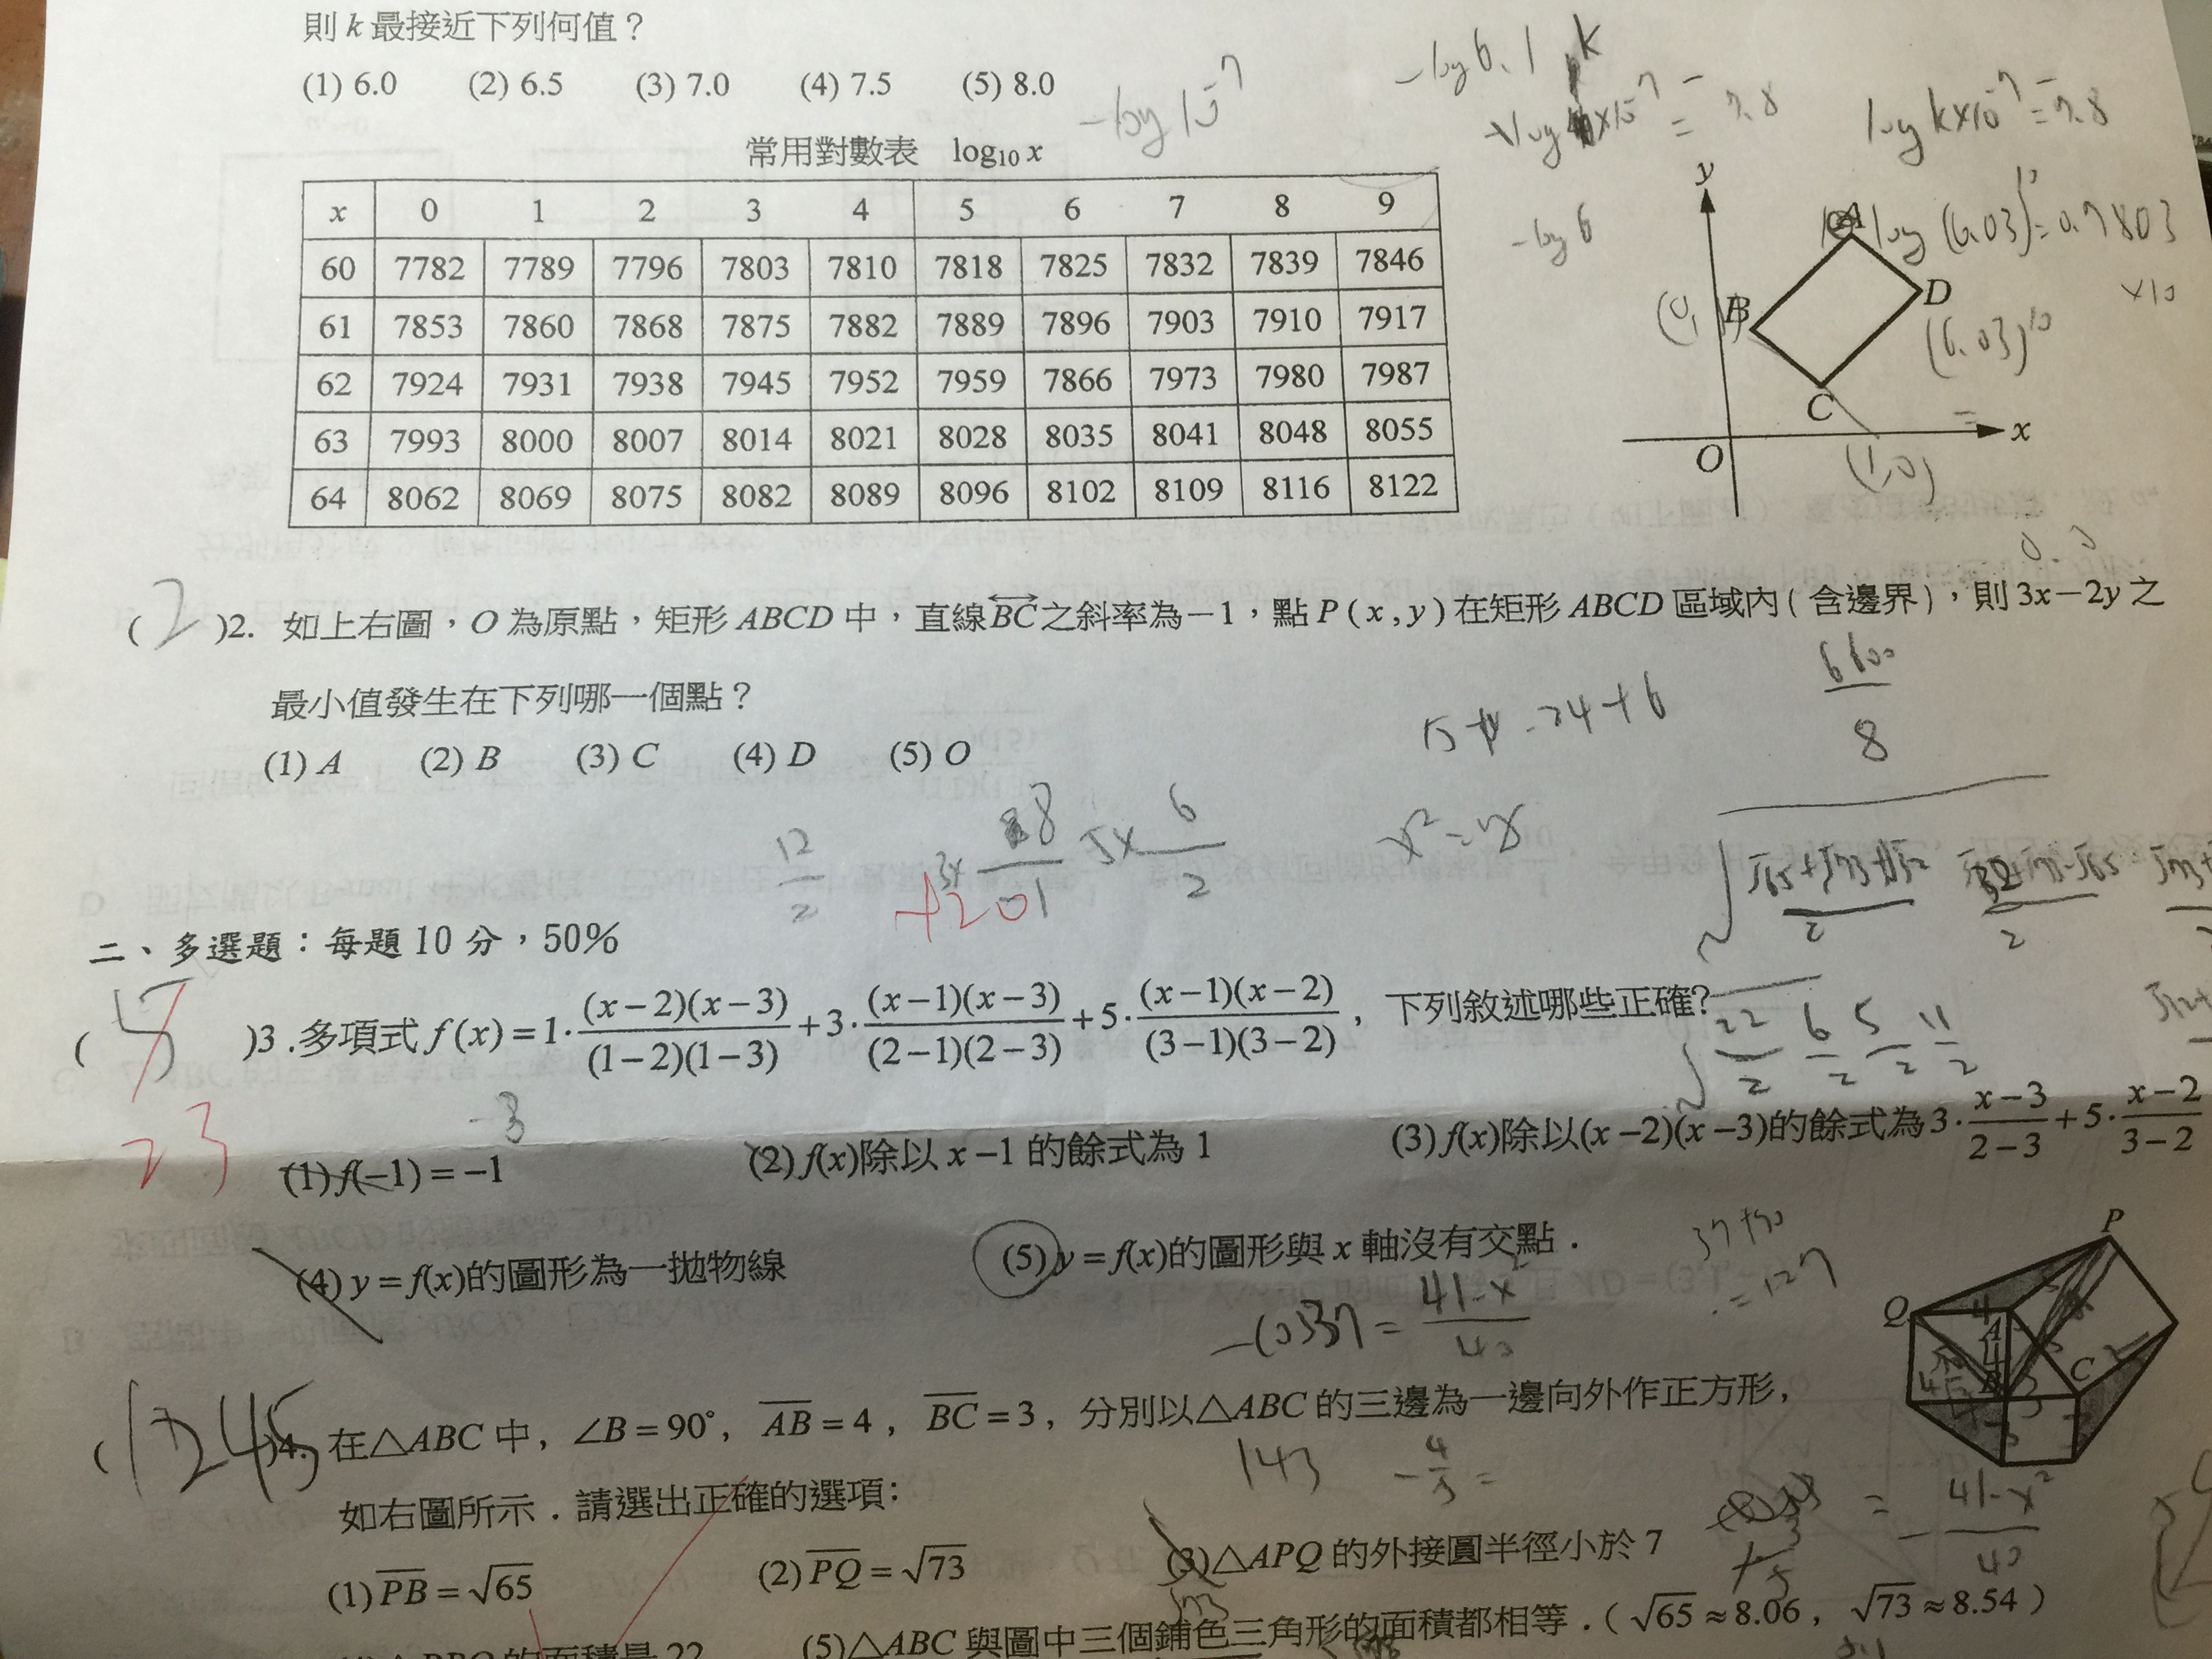 則 k 最接近下列何值？
(1) 6.0 (2) 6.5 (3) 7.0 (4) 7.5 (5) 8.0
-log 10⁻⁷
-log 6.1
k
log k×10⁻⁷ = -7.8
常用對數表 log₁₀ x
x 0 1 2 3 4 5 6 7 8 9
60 7782 7789 7796 7803 7810 7818 7825 7832 7839 7846
61 7853 7860 7868 7875 7882 7889 7896 7903 7910 7917
62 7924 7931 7938 7945 7952 7959 7866 7973 7980 7987
63 7993 8000 8007 8014 8021 8028 8035 8041 8048 8055
64 8062 8069 8075 8082 8089 8096 8102 8109 8116 8122
-log 6
y
A
log (6.03)¹⁰ = 0.7803
×10
B
D
(6.03)¹⁰
C
O
x
(1,0)
( 2 )2. 如上右圖，O 為原點，矩形 ABCD 中，直線 BC 之斜率為－1，點 P ( x , y ) 在矩形 ABCD 區域內 ( 含邊界 )，則 3x－2y 之
最小值發生在下列哪一個點？
(1) A (2) B (3) C (4) D (5) O
6600
8
12
2
+20
6
2
二、多選題：每題 10 分，50%
( 5 )3 .多項式 f(x) = 1·(x−2)(x−3)/(1−2)(1−3) + 3·(x−1)(x−3)/(2−1)(2−3) + 5·(x−1)(x−2)/(3−1)(3−2)， 下列敘述哪些正確?
22/2 6/2 5/2 11/2
23
-3
(1) f(−1) = −1 (2) f(x)除以 x−1 的餘式為 1 (3) f(x)除以(x−2)(x−3)的餘式為 3·(x−3)/(2−3) + 5·(x−2)/(3−2)
(4) y = f(x)的圖形為一拋物線 (5) y = f(x)的圖形與 x 軸沒有交點．
37+90
= 127
41-x²
40
P
Q
A
B
C
( 1245 )4. 在△ABC 中, ∠B = 90°, AB = 4 , BC = 3 , 分別以△ABC 的三邊為一邊向外作正方形,
143
-4/5 =
如右圖所示．請選出正確的選項:
= -(41-x²)/40
(1) PB = √65 (2) PQ = √73 (3)△APQ 的外接圓半徑小於 7
的面積是 22 (5)△ABC 與圖中三個鋪色三角形的面積都相等．( √65 ≈ 8.06 , √73 ≈ 8.54 )